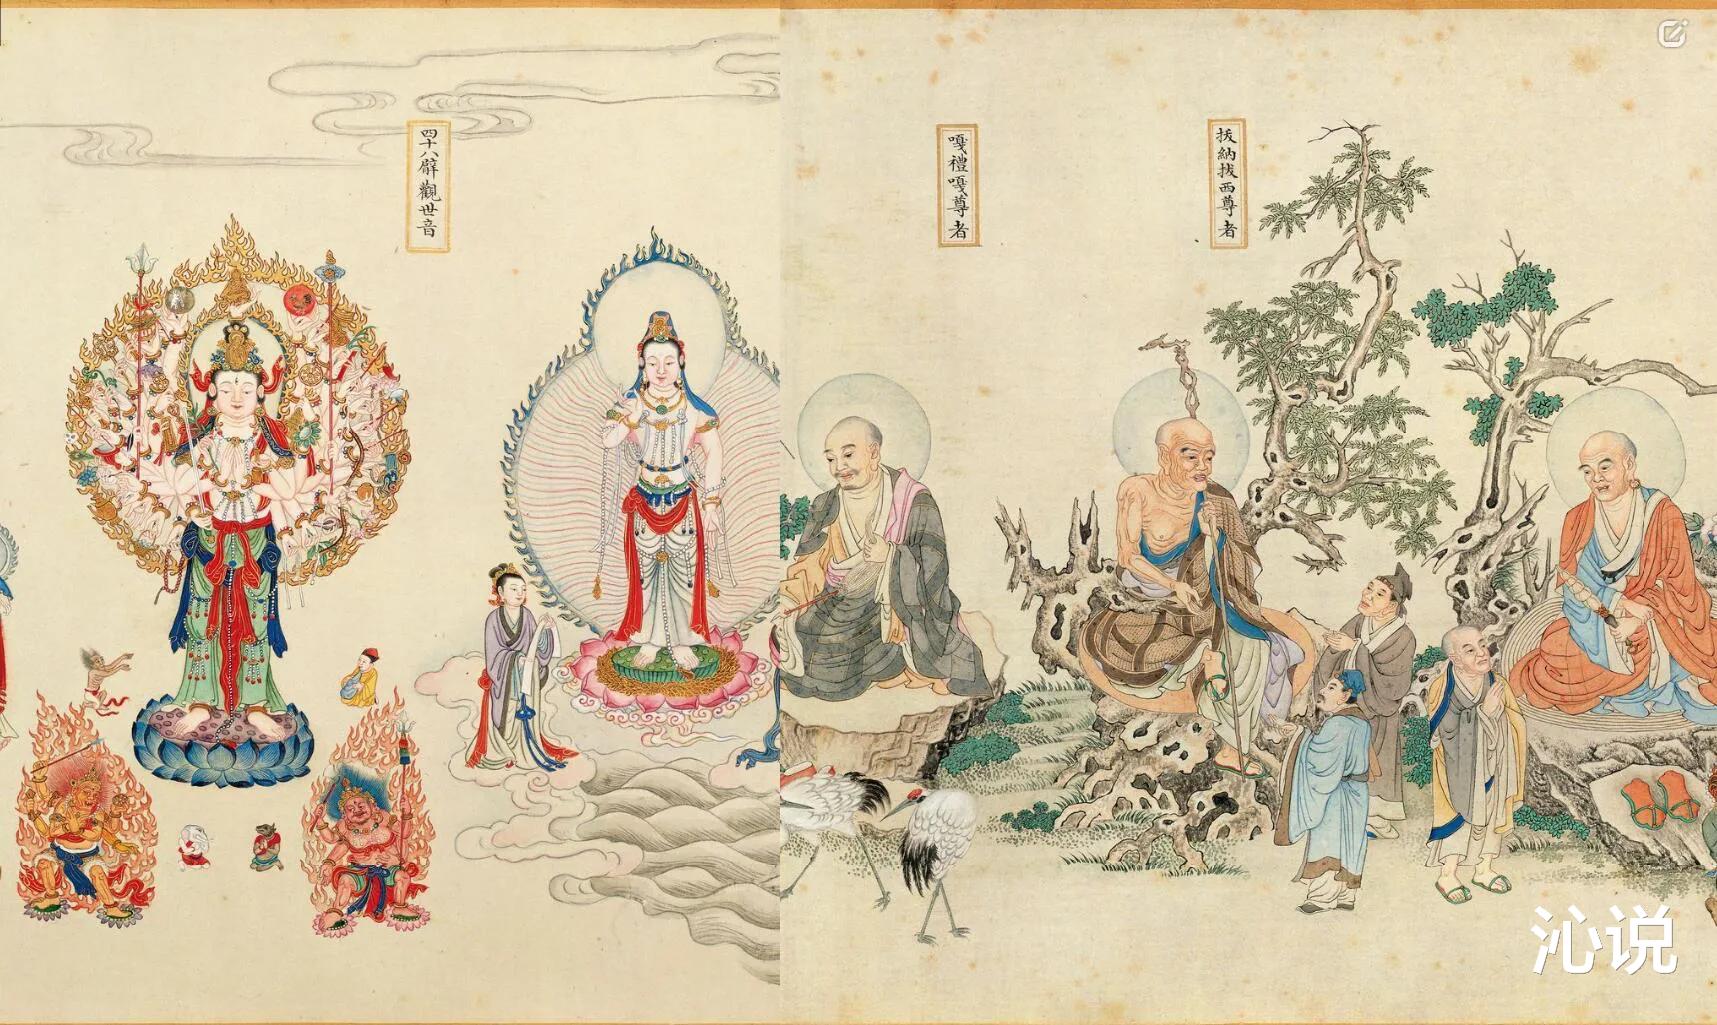 四十八臂觀世音
嘎禮嘎尊者
拔納拔西尊者
沁说